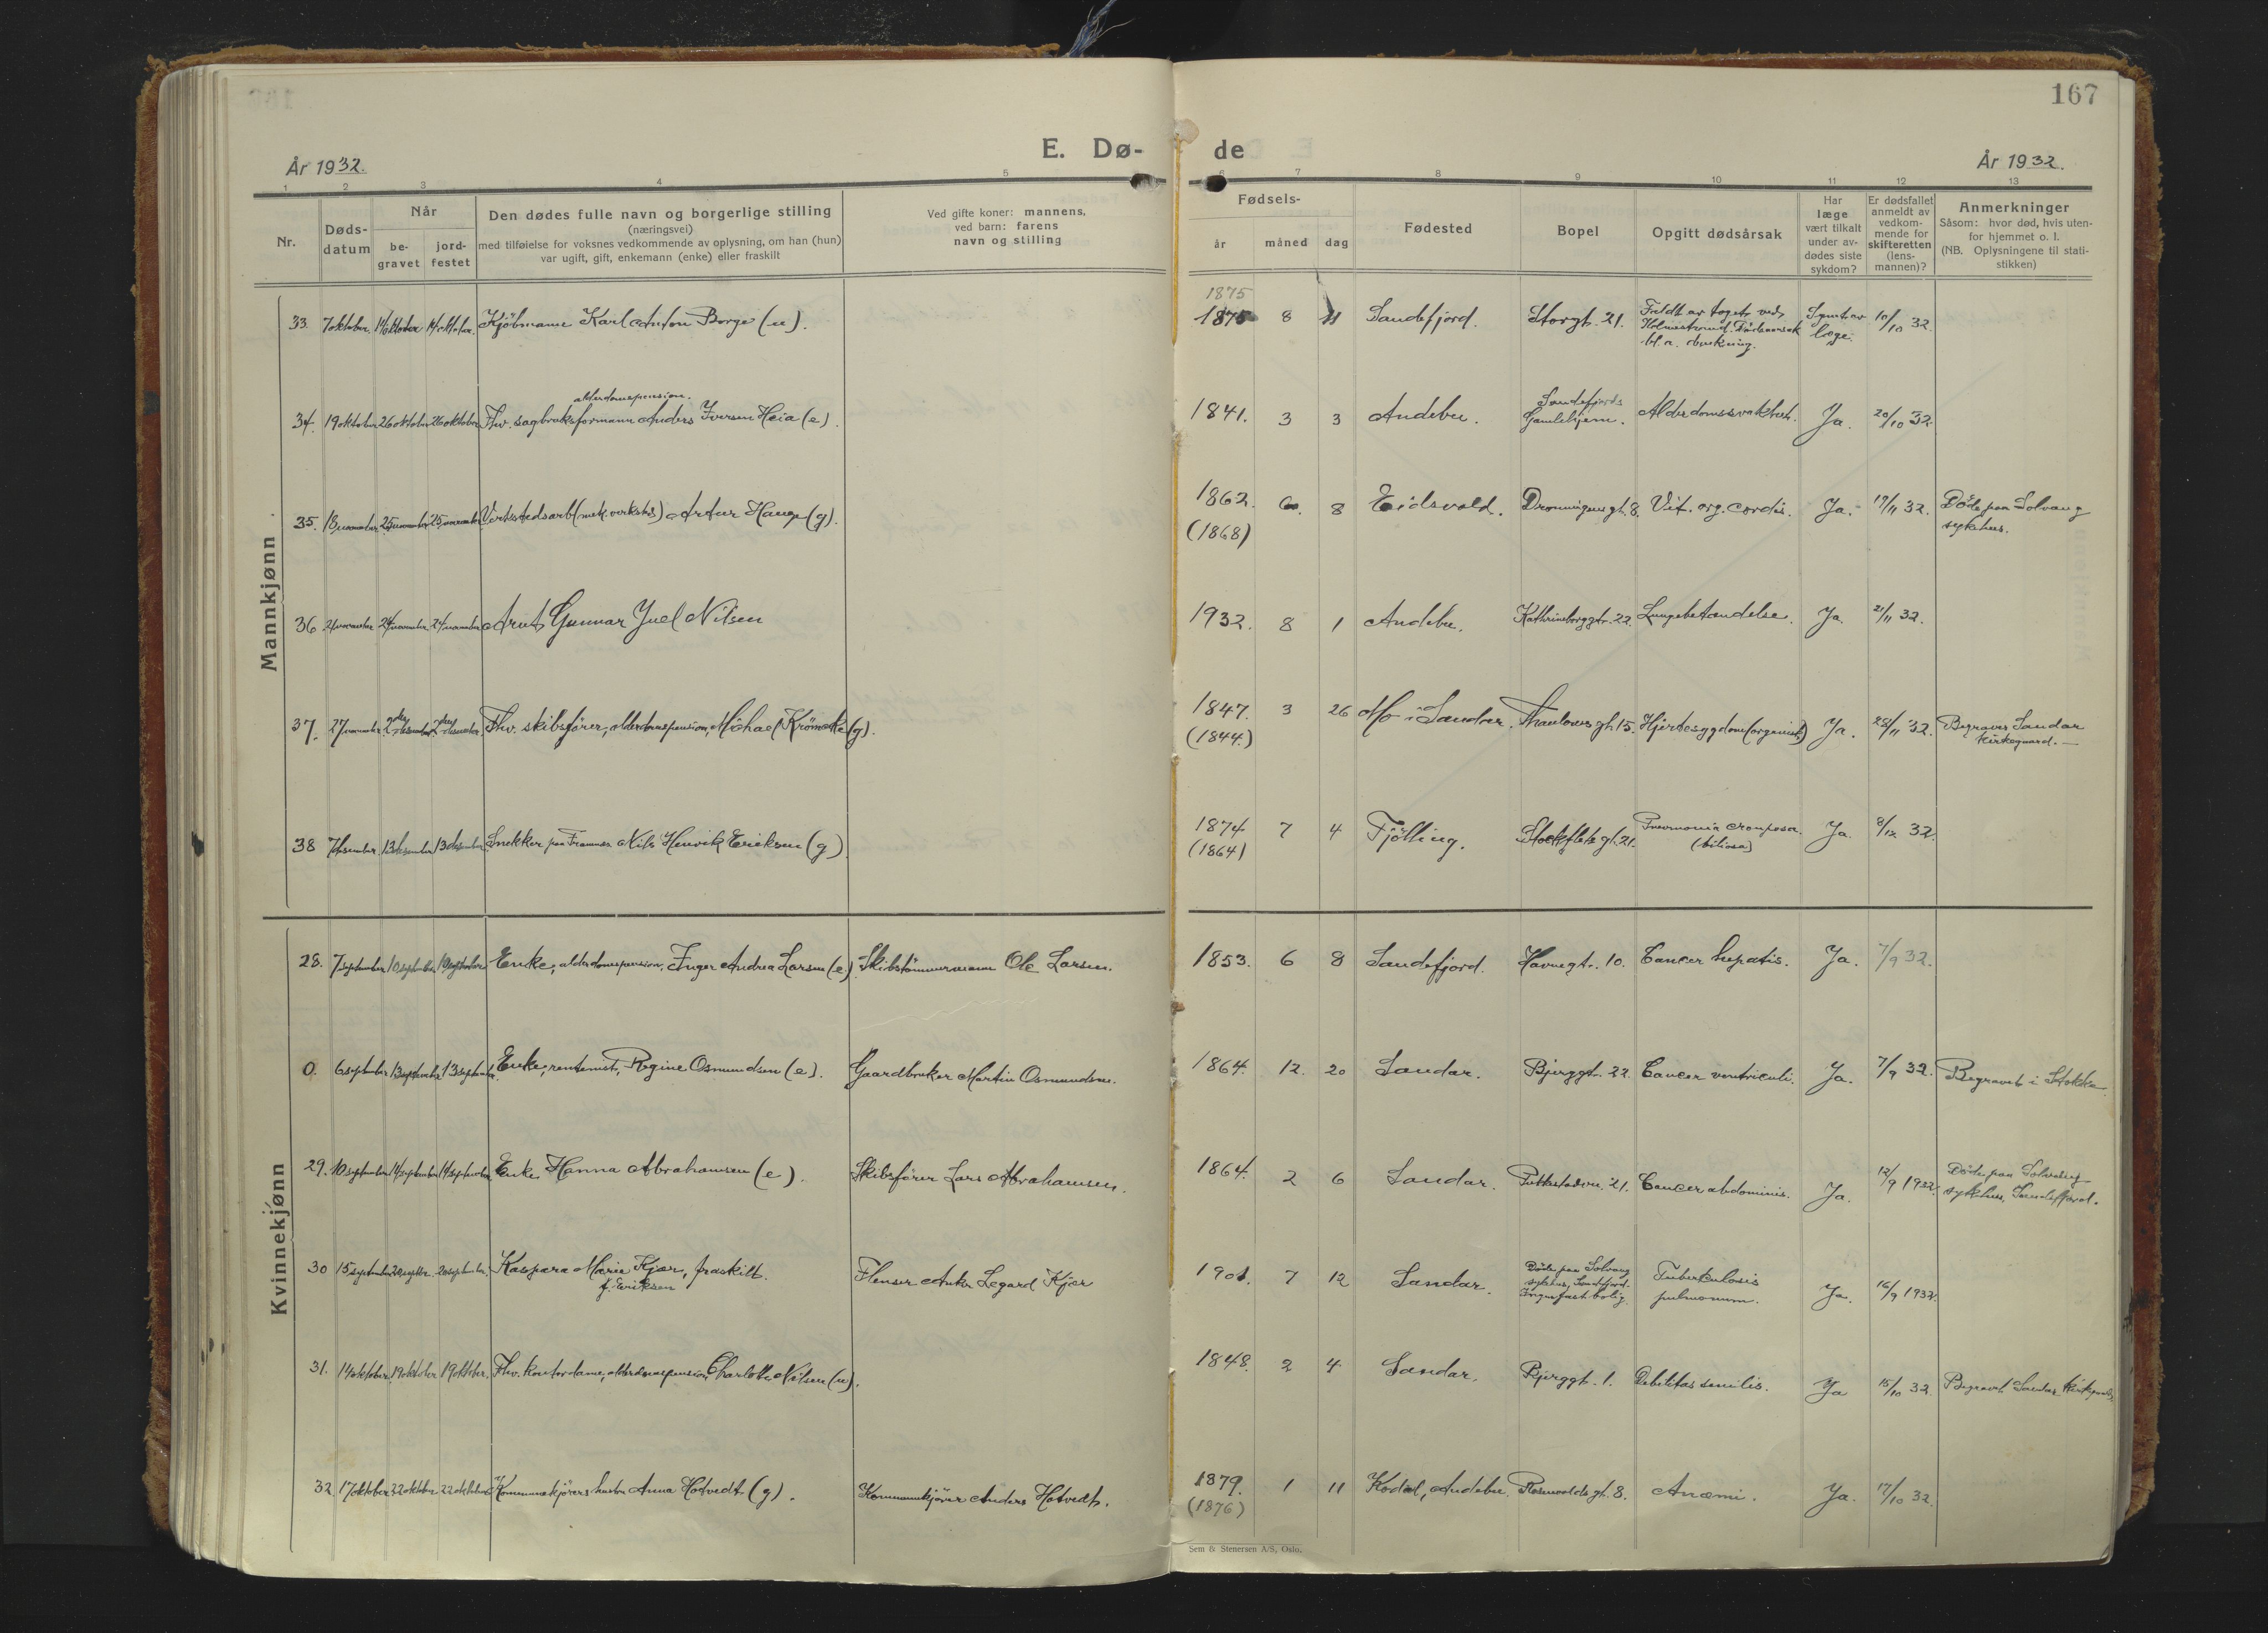 167
E. Dø-
de
År 1932.
År 1932.
1 2 3 4 5 6 7 8 9 10 11 12 13
Nr.
Døds-
datum
Når
be-
gravet
jord-
festet
Den dødes fulle navn og borgerlige stilling
(næringsvei)
med tilføielse for voksnes vedkommende av oplysning, om han (hun)
var ugift, gift, enkemann (enke) eller fraskilt
Ved gifte koner: mannens,
ved barn: farens
navn og stilling
Fødsels-
år
måned
dag
Fødested
Bopel
Opgitt dødsårsak
Har
læge
vært tilkalt
under av-
dødes siste
sykdom?
Er dødsfallet
anmeldt av
vedkom-
mende for
skifteretten
(lens-
mannen)?
Anmerkninger
Såsom: hvor død, hvis uten-
for hjemmet o. l.
(NB. Oplysningene til stati-
stikken)
Mannkjønn
1875
33. 7 oktober. 14 oktober 14 oktober. Kjöbmann Karl Anton Borge (u). 1875 8 11 Sandefjord. Storgt. 21. Faldt av toget ved Synt av læge. 10/10 32.
Holmestrand. Dödsaarsak
bl. a.
alderdomspension.
34. 19 oktober 26 oktober 26 oktober Fhv. sagbruksformann Anders Iversen Heia (e). 1841. 3 3 Andebu. Sandefjords Gamlehjem. Alderdomssvakhet. Ja. 20/10 32.
35. 18 november 25 november 25 november Verkstedsarb. (mek. verksted) Artur Hauge (g). 1862. 6. 8 Eidsvold. Dronningensgt. 8. Vit. org. cordis. Ja. 19/11 32. Döde paa Solvang
(1868) sykehus.
36. 21 november 24 november 24 november Arnt Gunnar Juel Nilsen 1932. 8 1 Andebu. Kathrineborggt. 22. Lungebetændelse. Ja. 21/11 32.
37. 27 november 2 desember 2 desember Fhv. skibsfører, alderdomspension, Michael Krömcke (g). 1847. 3 26 Mo i Sandar. Thaulowsgt. 15. Hjertesygdom (organisk) Ja. 28/11 32. Begraves Sandar
(1844.) kirkegaard.
38 7 desember 13 desember 13 desember. Snekker paa Framnes Nils Henrik Eriksen (g). 1874 7 4 Tjölling. Stockfletsgt. 21. Pneumonia crouposa. Ja. 8/12 32.
(1864) (biliosa)
Kvinnekjønn
28. 7 september 10 september 10 september Enke, alderdomspension, Inger Andrea Larsen (e). Skibstömmermann Ole Larsen. 1853. 6 8 Sandefjord. Havnegt. 10. Cancer hepatis. Ja. 7/9 32.
0. 6 september 13 september 13 september. Enke, rentenist, Regine Osmundsen (e). Gaardbruker Martin Osmundsen. 1864. 12. 20 Sandar. Bjerggt. 22. Cancer ventriculi. Ja. 7/9 32. Begravet i Stokke.
29. 10 september 14 september 14 september Enke Hanna Abrahamsen (e). Skibsfører Lars Abrahamsen. 1864. 2 6 Sandar. Puttestadvn. 21. Cancer abdominis. Ja. 12/9 1932. Döde paa Solvang
sykehus, Sandefjord.
30 15 september 20 septbr. 20 september. Kaspara Marie Kjær, fraskilt. Flenser Anker Legard Kjær 1901. 7 12 Sandar. Döde paa Solvang Tuberkulosis Ja. 16/9 1932.
f. Eriksen sykehus, Sandefjord. pulmonum.
Ingen fast bolig.
31. 14 oktober 19 oktober 19 oktober. Fhv. kontordame, alderdomspension, Charlotte Nilsen (u). 1848. 2 4. Sandar. Bjerggt. 1. Debilitas senilis. Ja 15/10 32. Begravet Sandar kirkegaard.
32 17 oktober 22 oktober 22 oktober Kommunekjörers hustru Anna Hotvedt (g). Kommunekjörer Anders Hotvedt. 1879. 1 11 Kodal, Andebu. Rosenvoldsgt. 8. Anæmi. Ja. 17/10 32.
(1876)
Sem & Stenersen A/S, Oslo.